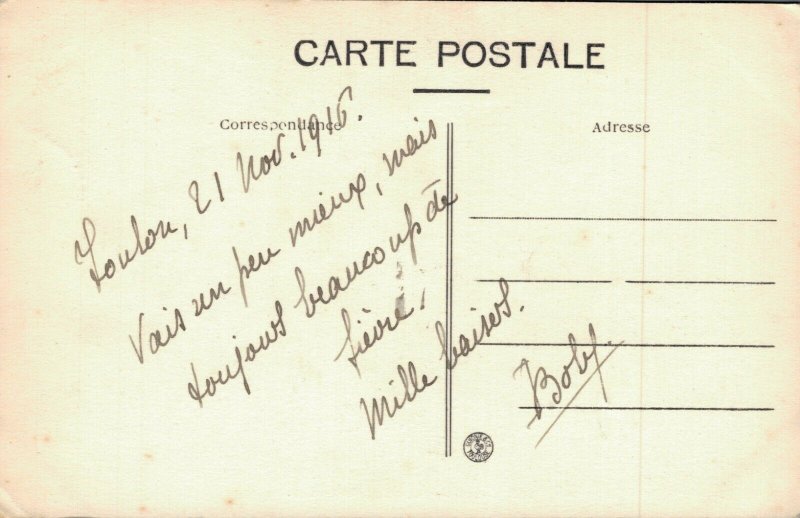 CARTE POSTALE
Correspondance
Adresse
Toulon, 21 Nov. 1916.
Vais un peu mieux, mais
toujours beaucoup de
fièvre.
Mille baisers.
Boby.